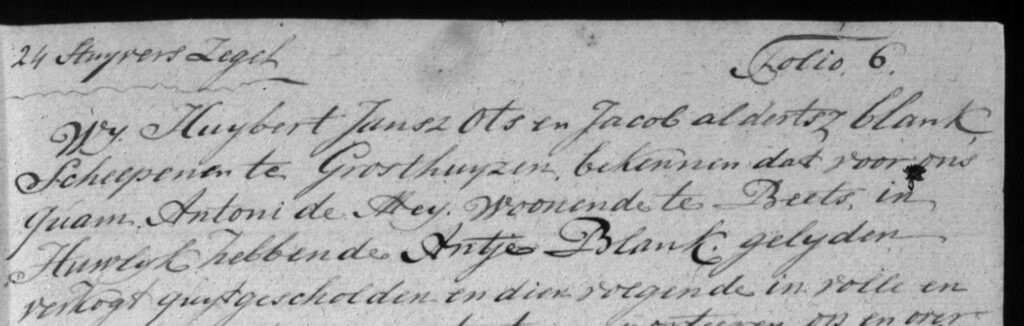 24 Stuyvers Zegel
Folio. 6.
Wy. Huybert Jansz Ots en Jacob aldertsz blank,
Scheepenen te Grosthuyzen, bekennen dat voor ons
quam. Antoni de Mey. woonende te Beets, in
Huwlyk hebbende Antje Blank. gelyden
verkogt quytgescholden en dien volgende in volle en
op en over